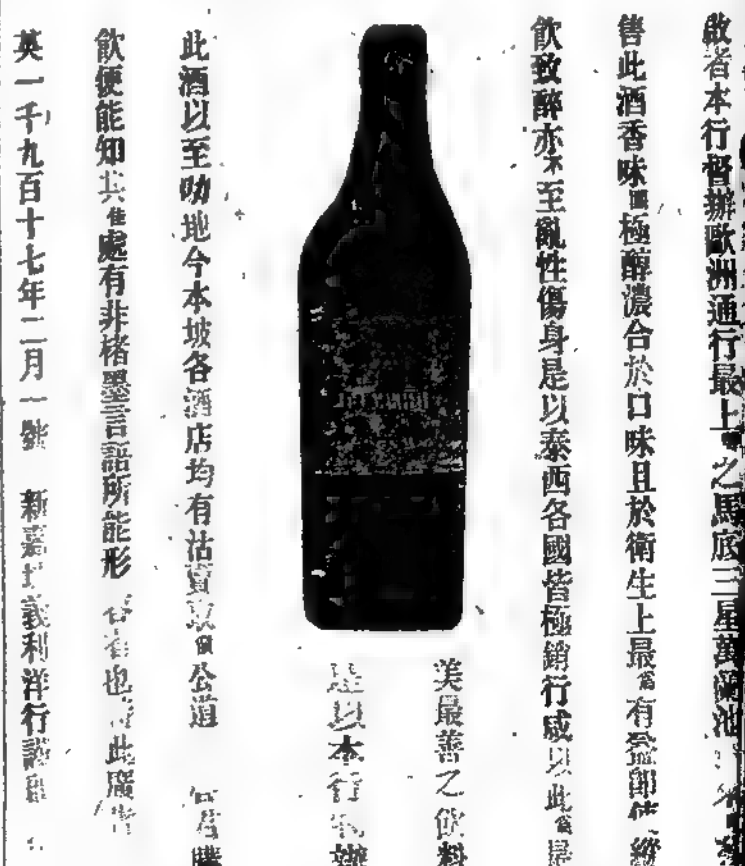 啟者本行督辦歐洲通行最上之馬底三星萬蘭池
售此酒香味極醇濃合於口味且於衛生上最為有益即使縱
飲致醉亦不至亂性傷身是以泰西各國皆極銷行咸以此為最
美最善之飲料
是以本行辦
此酒以至叻地今本坡各酒店均有沽賣取價公道 購
飲便能知其佳處有非楮墨言語所能形容者也 此廣告
英一千九百十七年二月一號 新嘉坡義利洋行謹啟